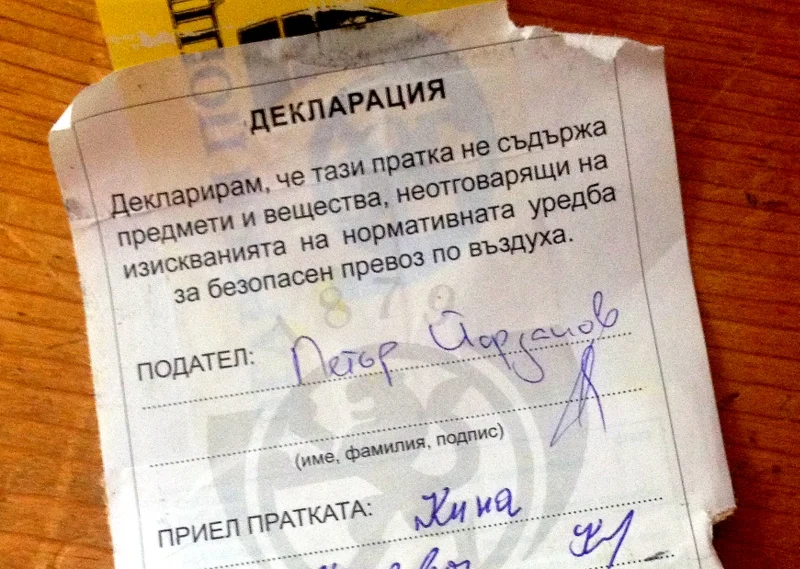 ДЕКЛАРАЦИЯ
Декларирам, че тази пратка не съдържа
предмети и вещества, неотговарящи на
изискванията на нормативната уредба
за безопасен превоз по въздуха.
1879
ПОДАТЕЛ: Петър Йорданов
(име, фамилия, подпис)
ПРИЕЛ ПРАТКАТА: Кина